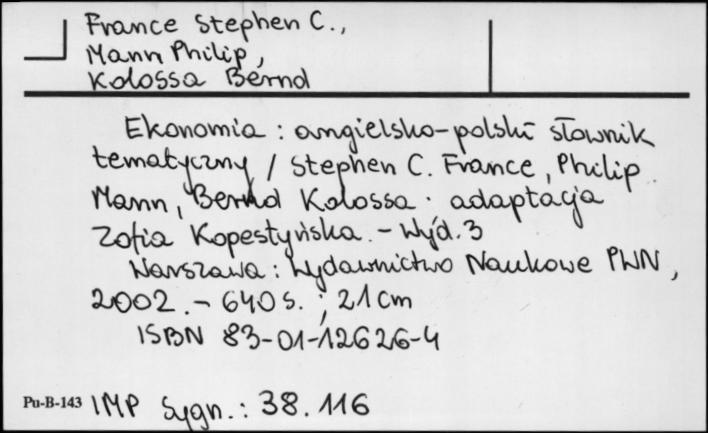 France Stephen C.,
Mann Philip,
Kolossa Bernd
Ekonomia : angielsko-polski słownik
tematyczny / Stephen C. France, Philip
Mann, Bernd Kolossa. adaptacja
Zofia Kopestyńska. - Wyd. 3
Warszawa : Wydawnictwo Naukowe PWN,
2002. - 640 s. ; 21 cm
ISBN 83-01-12626-4
Pu-B-143 IMP Sygn.: 38.116